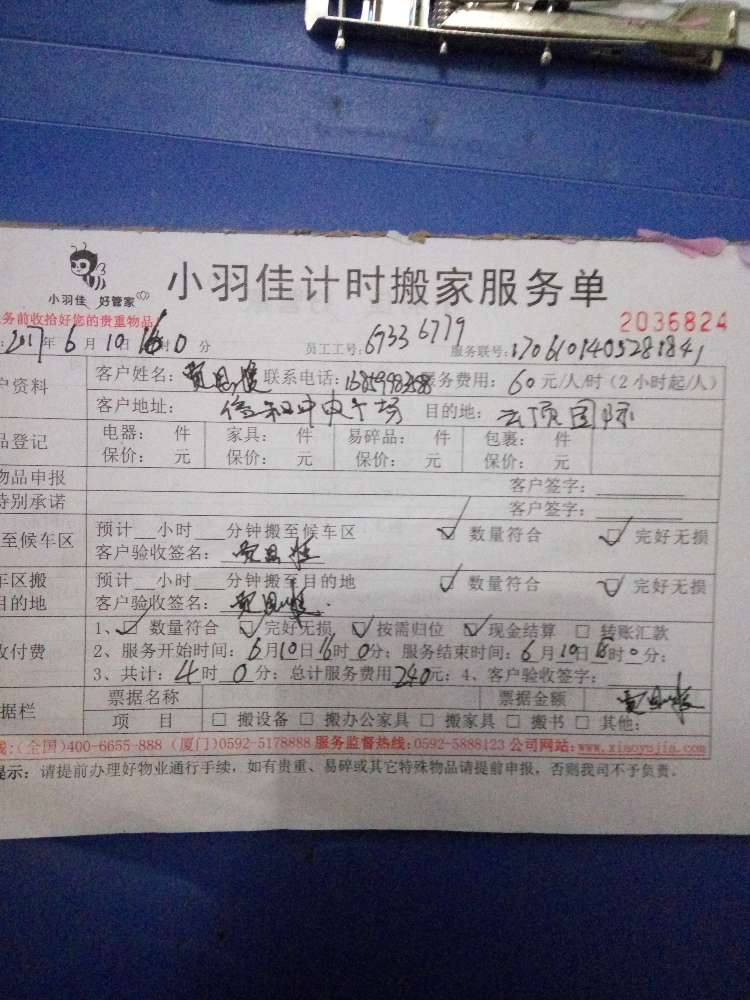 小羽佳 好管家
小羽佳计时搬家服务单
务前收拾好您的贵重物品
2036824
2017年6月10日 时0分 员工工号:6733 6779 服务联号:1706101405281841
户资料 客户姓名: 联系电话: 服务费用:60元/人/时(2小时起/人)
客户地址: 目的地:云顶国际
品登记 电器: 件 家具: 件 易碎品: 件 包裹: 件
保价: 元 保价: 元 保价: 元 保价: 元
物品申报 客户签字:
特别承诺 客户签字:
至候车区 预计__小时___分钟搬至候车区 ☑ 数量符合 ☑ 完好无损
客户验收签名:
车区搬 预计__小时___分钟搬至目的地 ☑ 数量符合 ☑ 完好无损
目的地 客户验收签名:
1、☑ 数量符合 ☑ 完好无损 ☑ 按需归位 ☑ 现金结算 □ 转账汇款
收付费 2、服务开始时间:6月10日16时0分;服务结束时间:6月10日 时0分;
3、共计:4时0分;总计服务费用240元;4、客户验收签字:
据栏 票据名称 票据金额
项 目 □ 搬设备 □ 搬办公家具 □ 搬家具 □ 搬书 □ 其他:
线:(全国)400-6655-888 (厦门)0592-5178888 服务监督热线:0592-5888123 公司网站:www.xiaoyujia.com
提示:请提前办理好物业通行手续,如有贵重、易碎或其它特殊物品请提前申报,否则我司不予负责。